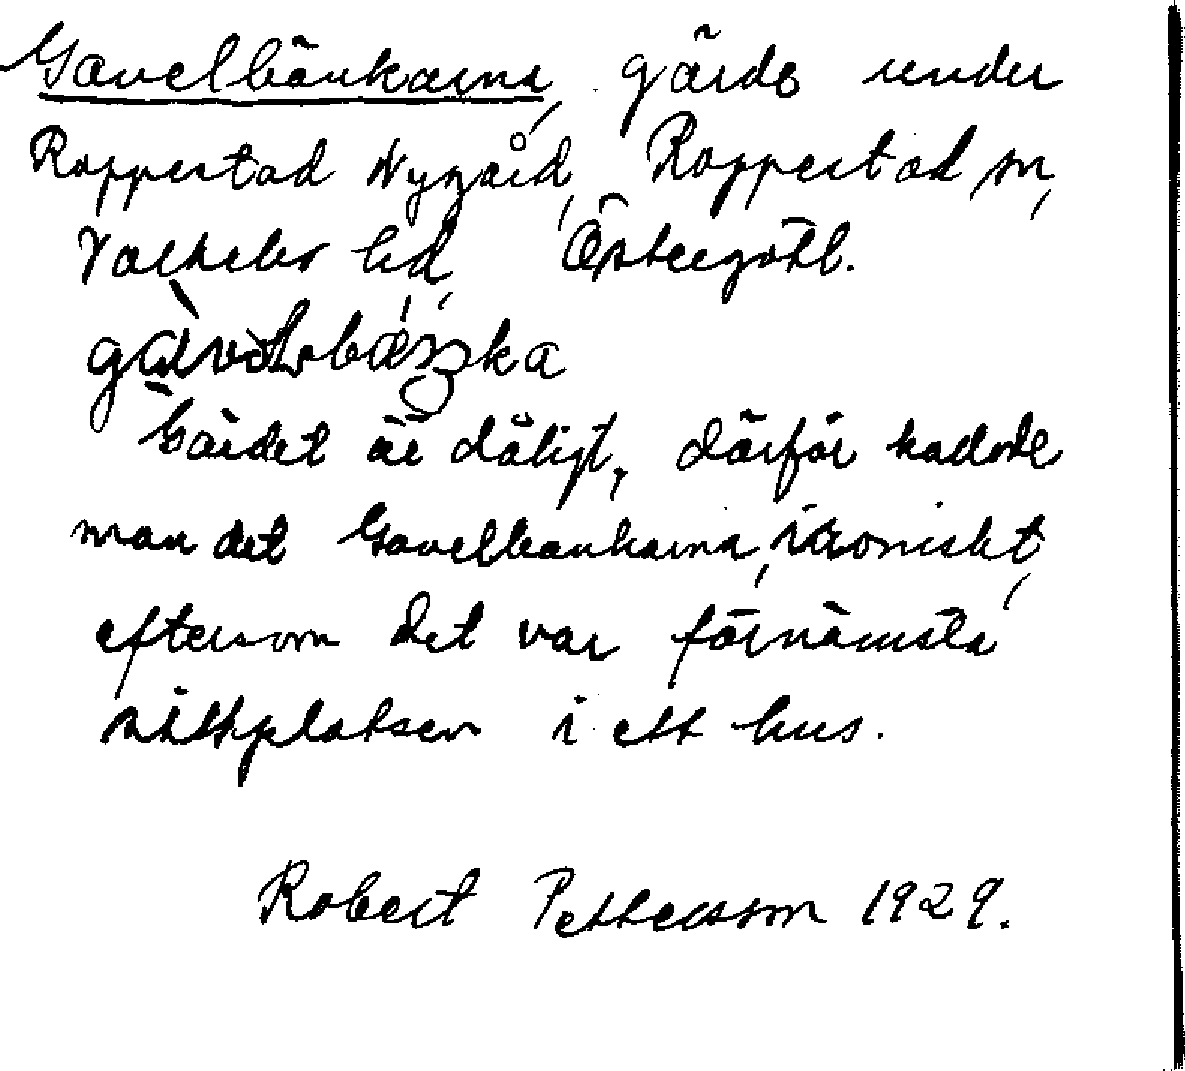 Gavelbänkarna, gärde under
Rappestad Nygård, Rappestad sn,
Valkebo hd, Östergötl.
Gärdet är dåligt, därför kallade
man det Gavelbänkarna, ironiskt,
eftersom det var förnämsta
sittplatsen i ett hus.
Robert Pettersson 1929.